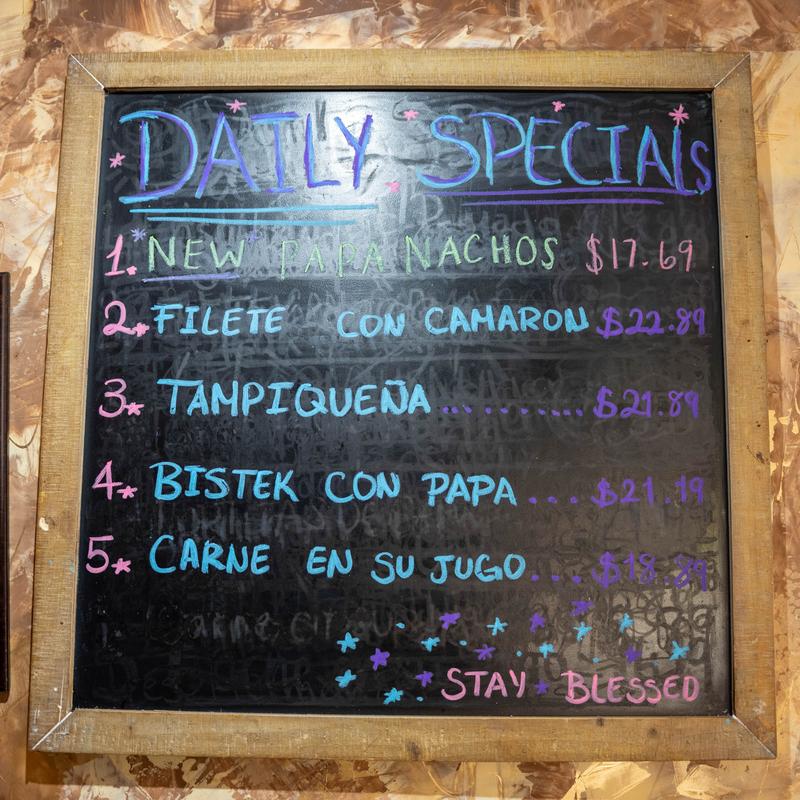 DAILY SPECIALS
1. NEW PAPA NACHOS $17.69
2. FILETE CON CAMARON $22.89
3. TAMPIQUEÑA ........... $21.89
4. BISTEK CON PAPA ... $21.19
5. CARNE EN SU JUGO ... $18.89
STAY BLESSED